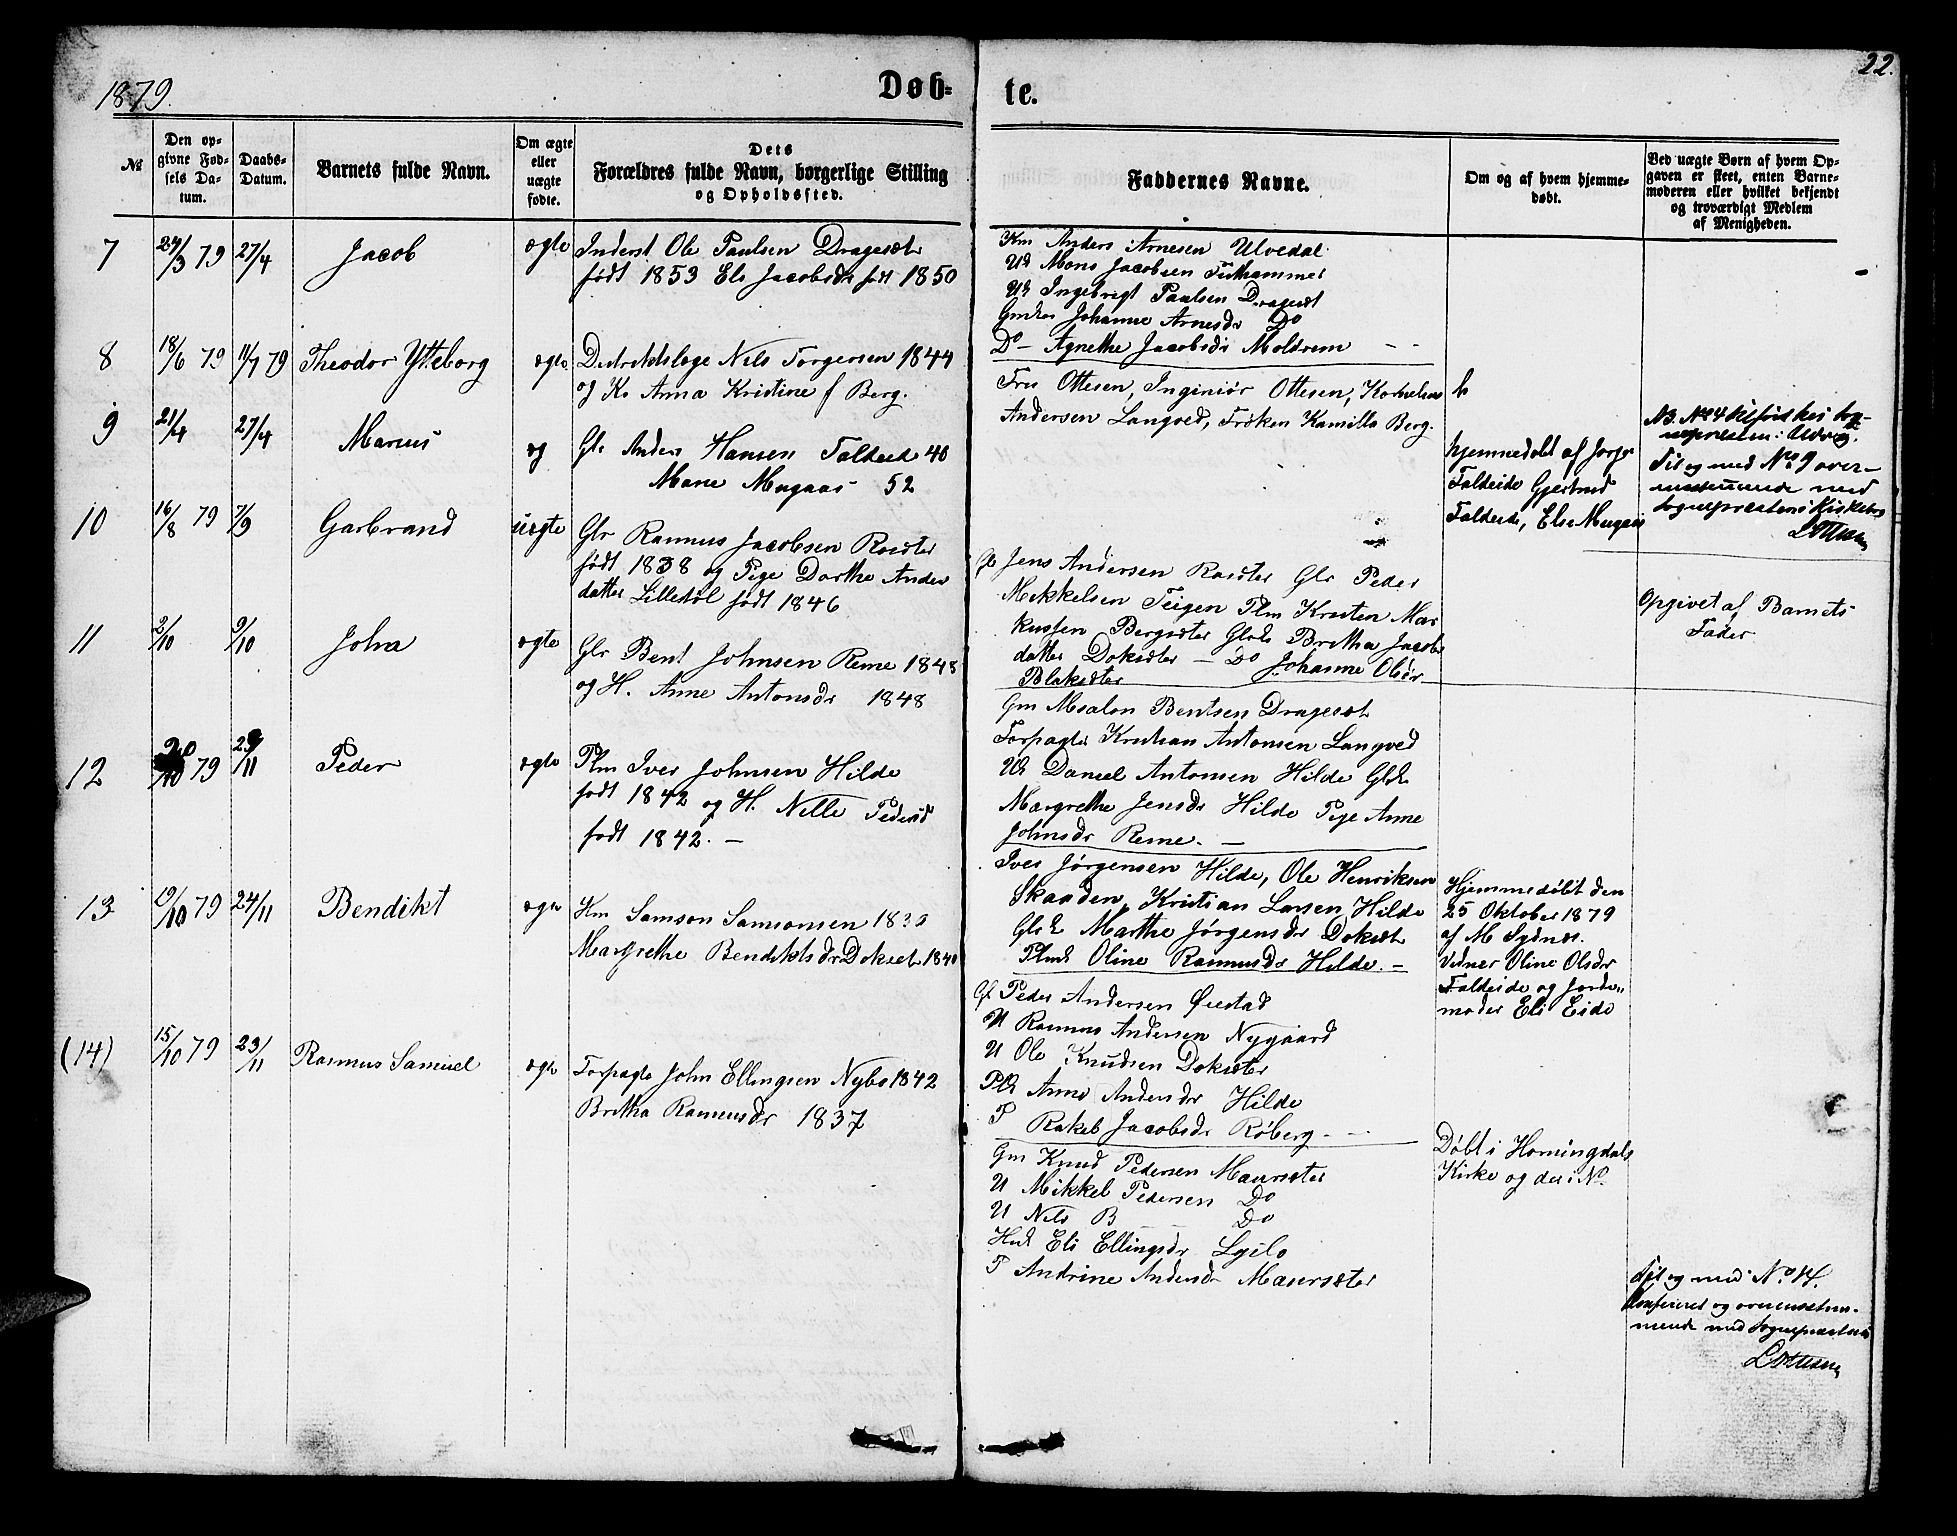 1879.
Døb-
te.
22.
№
Den op-
givne Fød-
sels Da-
tum.
Daabs-
Datum.
Barnets fulde Navn.
Om ægte
eller
uægte
fødte.
Dets
Forældres fulde Navn, borgerlige Stilling
og Opholdssted.
Faddernes Navne.
Om og af hvem hjemme-
døbt.
Ved uægte Børn af hvem Op-
gaven er skeet, enten Barne-
moderen eller hvilket bekjendt
og troværdigt Medlem
af Menigheden.
7
27/3 79
27/4
Jacob
ægte
Inderst Ole Paulsen Dragesæt
født 1853 Els Jacobsdr født 1850
Km Anders Arnesen Ulvedal
Uk Mons Jacobsen
Uk Ingebrigt Paulsen Dragesæt
Johanne Arnesdr Do
Do - Agnethe Jacobsdr Moldrem - -
8
18/6 79
11/7 79
Theodor Ytteborg
ægte
Distriktslæge Nils Torgersen 1844
og K. Anna Kristine f Berg.
Fru Ottesen, Inginiør Ottesen, Kornelius
Andersen Langved, Frøken Kamilla Berg.
h
9
21/4
27/4
Marius
æg
Gbr Anders Hansen Faldeide 40
Marie Mugaas 52
hjemmedøbt af Jørg
Faldeide Gjertrud
Faldeide, Else Mugaas
Til og med No 9 over-
med
Sognepræstens Kirkebog
LOttesen
10
16/8 79
7/9
Garbrand
uægte
Gbr Rasmus Jacobsen Rosæter
født 1838 og Pige Dorthe Anders
datter Lillestøl født 1846
Gb Jens Andersen Rosæter Gbr Peder
Mikkelsen Teigen Plm Kristen Mar
kussen Bergsæter Gbrk Britha Jacobs
datter Doksæter - Do Johanne Olsdr
Blaksæter
Opgivet af Barnets
Fader
11
2/10
9/10
John
ægte
Gbr Bent Johnsen Reme 1848
og H. Anne Antonsdr 1848
Gm Absalon Bentsen Dragesæt
Forpagter Kristian Antonsen Langved
Uk Daniel Antonsen Hilde Gbk
Margrethe Jensdr Hilde Pige Anne
Johnsdr Reme. -
12
/10 79
23/11
Peder
ægte
Plm Iver Johnsen Hilde
født 1842 og H. Nille Pedersd
født 1842. -
Iver Jørgensen Hilde, Ole Henriksen
Skaaden, Kristian Larsen Hilde
Gbk Marthe Jørgensdr Doksæt
Plmk Oline Rasmusdr Hilde. -
13
19/10 79
24/11
Bendikt
ægte
Km Samson Samsonsen
Margrethe Bendiktsdr Doksæt 1840
Gb Peder Andersen Ørestad
U Rasmus Andersen Nygaard
U Ole Knudsen Doksæter
Plk Anne Andersdr Hilde
P Rakel Jacobsdr Røberg - - -
Hjemmedøbt den
25 Oktober 1879
af M Sydnes.
Vidner Oline Olsdr
Faldeide og Jorde-
moder Eli Eide
(14)
15/10 79
23/11
Rasmus Samuel
ægte
Forpagte John Ellingsen Nybø 1842
Britha Rasmusdr 1837
Gm Knud Pedersen Maursæter
U Mikkel Pedersen Do
U Nils B - - Do
Eli Ellingsdr
P Andrine Andersdr Maursæter
Døbt i Horningdals
Kirke og der i No.
Til og med No 14.
Konfereret og overensstem-
mende med Sognepræstens
LOttesen